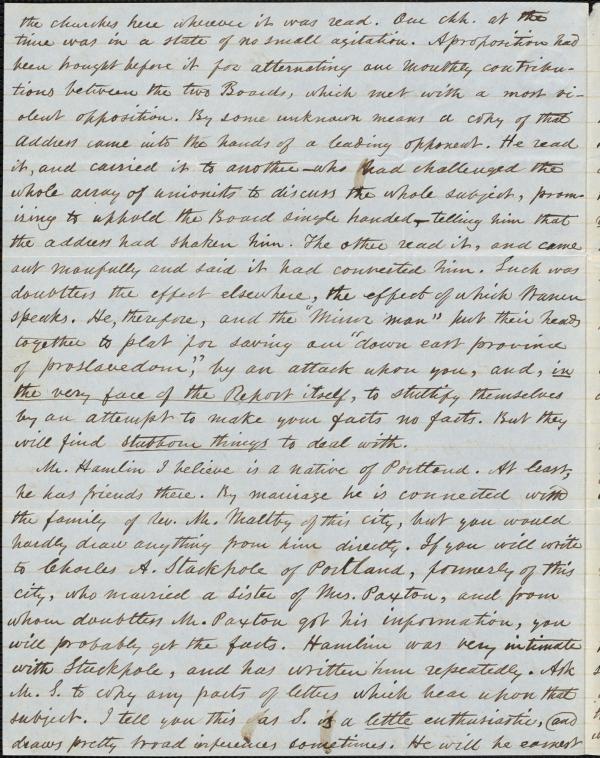 the churches here wherever it was read. Our chh. at the
time was in a state of no small agitation. A proposition had
been brought before it for alternating our monthly contribu-
tions between the two Boards, which met with a most vi-
olent opposition. By some unknown means a copy of that
Address came into the hands of a leading opponent. He read
it, and carried it to another – who had challenged the
whole array of unionists to discuss the whole subject, prom-
ising to uphold the Board single handed, – telling him that
the address had shaken him. The other read it, and came
out manfully and said it had converted him. Such was
doubtless the effect elsewhere, the effect of which Warren
speaks. He, therefore, and the "Minor man" put their heads
together to plat for saving our "down east province
of proslavedom," by an attack upon you, and, in
the very face of the Report itself, to stultify themselves
by an attempt to make your facts no facts. But they
will find stubborn things to deal with.
Mr. Hamlin I believe is a native of Portland. At least,
he has friends there. By marriage he is connected with
the family of rev. Mr. Maltby of this city, but you would
hardly draw anything from him directly. If you will write
to Charles A. Stackpole of Portland, formerly of this
city, who married a sister of Mrs. Paxton, and from
whom doubtless Mr. Paxton got his information, you
will probably get the facts. Hamlin was very intimate
with Stackpole, and has written him repeatedly. Ask
Mr. S. to copy any parts of letters which bear upon that
subject. I tell you this as S. is a little enthusiastic, (and
draws pretty broad inferences sometimes. He will be earnest